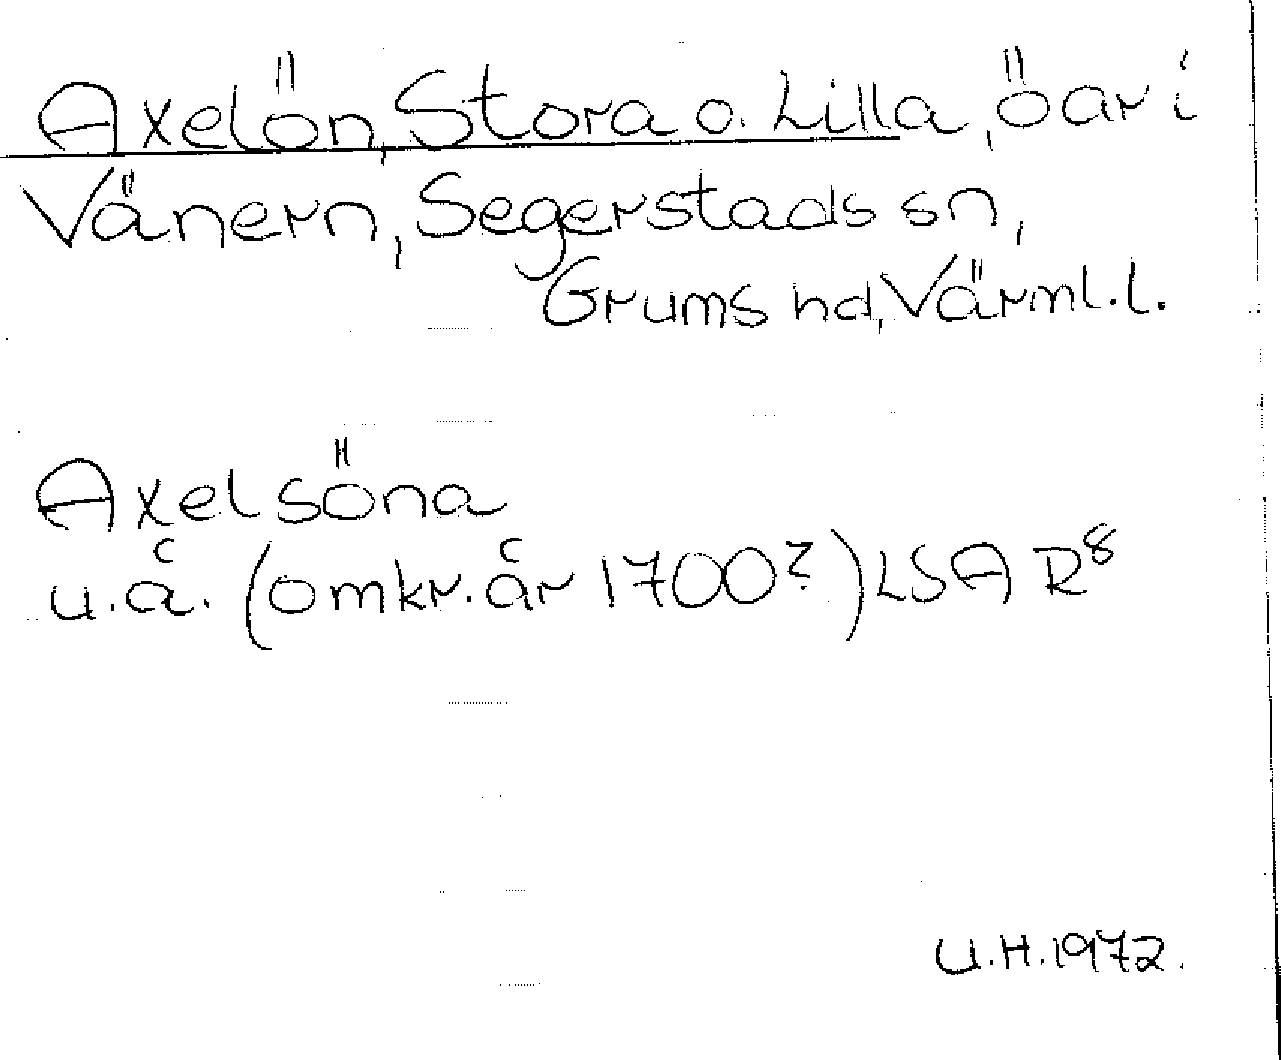 Axelön, Stora o. Lilla, öar i
Vänern, Segerstads sn,
Grums hd, Värml.l.
Axelsöna
u.å. (omkr. år 1700?) LSA R⁸
U.H. 1972.